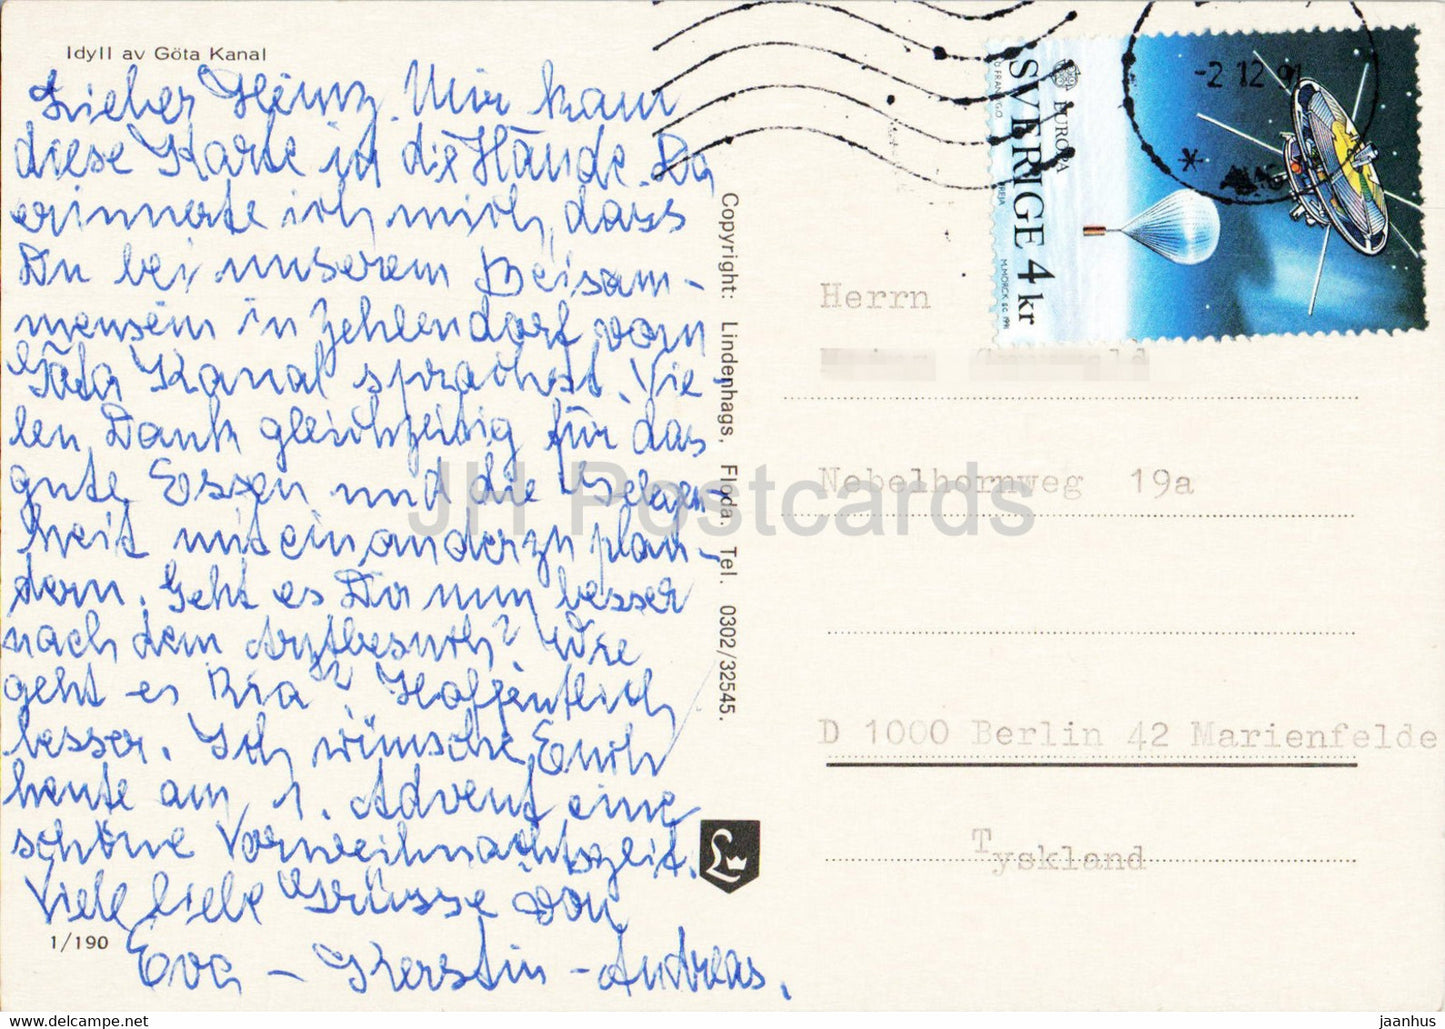 Idyll av Göta Kanal
Lieber Heinz. Mir kam
diese Karte in die Hände. Da
erinnerte ich mich, dass
Du bei unserem Beisam-
mensein in Zehlendorf vom
Göta Kanal sprachst. Vie-
len Dank gleichzeitig für das
gute Essen und die Gelegen
heit miteinander zu plau-
dern. Geht es Dir nun besser
nach dem Arztbesuch? Wie
geht es Ria? Hoffentlich
besser. Ich wünsche Euch
heute am 1. Advent eine
schöne Vorweihnachtszeit.
Viele liebe Grüsse von
Eva - Kerstin - Andreas.
1/190
Copyright: Lindenhags, Floda. Tel. 0302/32545.
L
SVERIGE 4 kr
EUROPA
M.MÖRCK SC. 1991
-2 12 91
Herrn
Nebelhornweg 19a
D 1000 Berlin 42 Marienfelde
Tyskland
JH Postcards
jaanhus.com
jaanhus